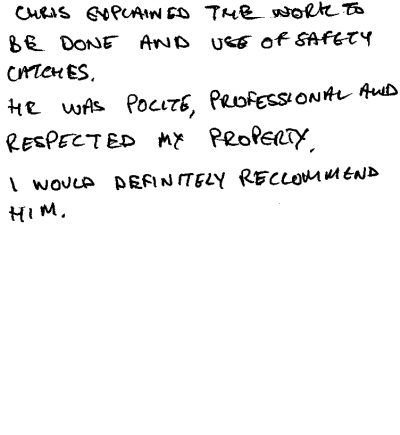 CHRIS EXPLAINED THE WORK TO
BE DONE AND USE OF SAFETY
CATCHES.
HE WAS POLITE, PROFESSIONAL AND
RESPECTED MY PROPERTY.
I WOULD DEFINITELY RECCOMMEND
HIM.